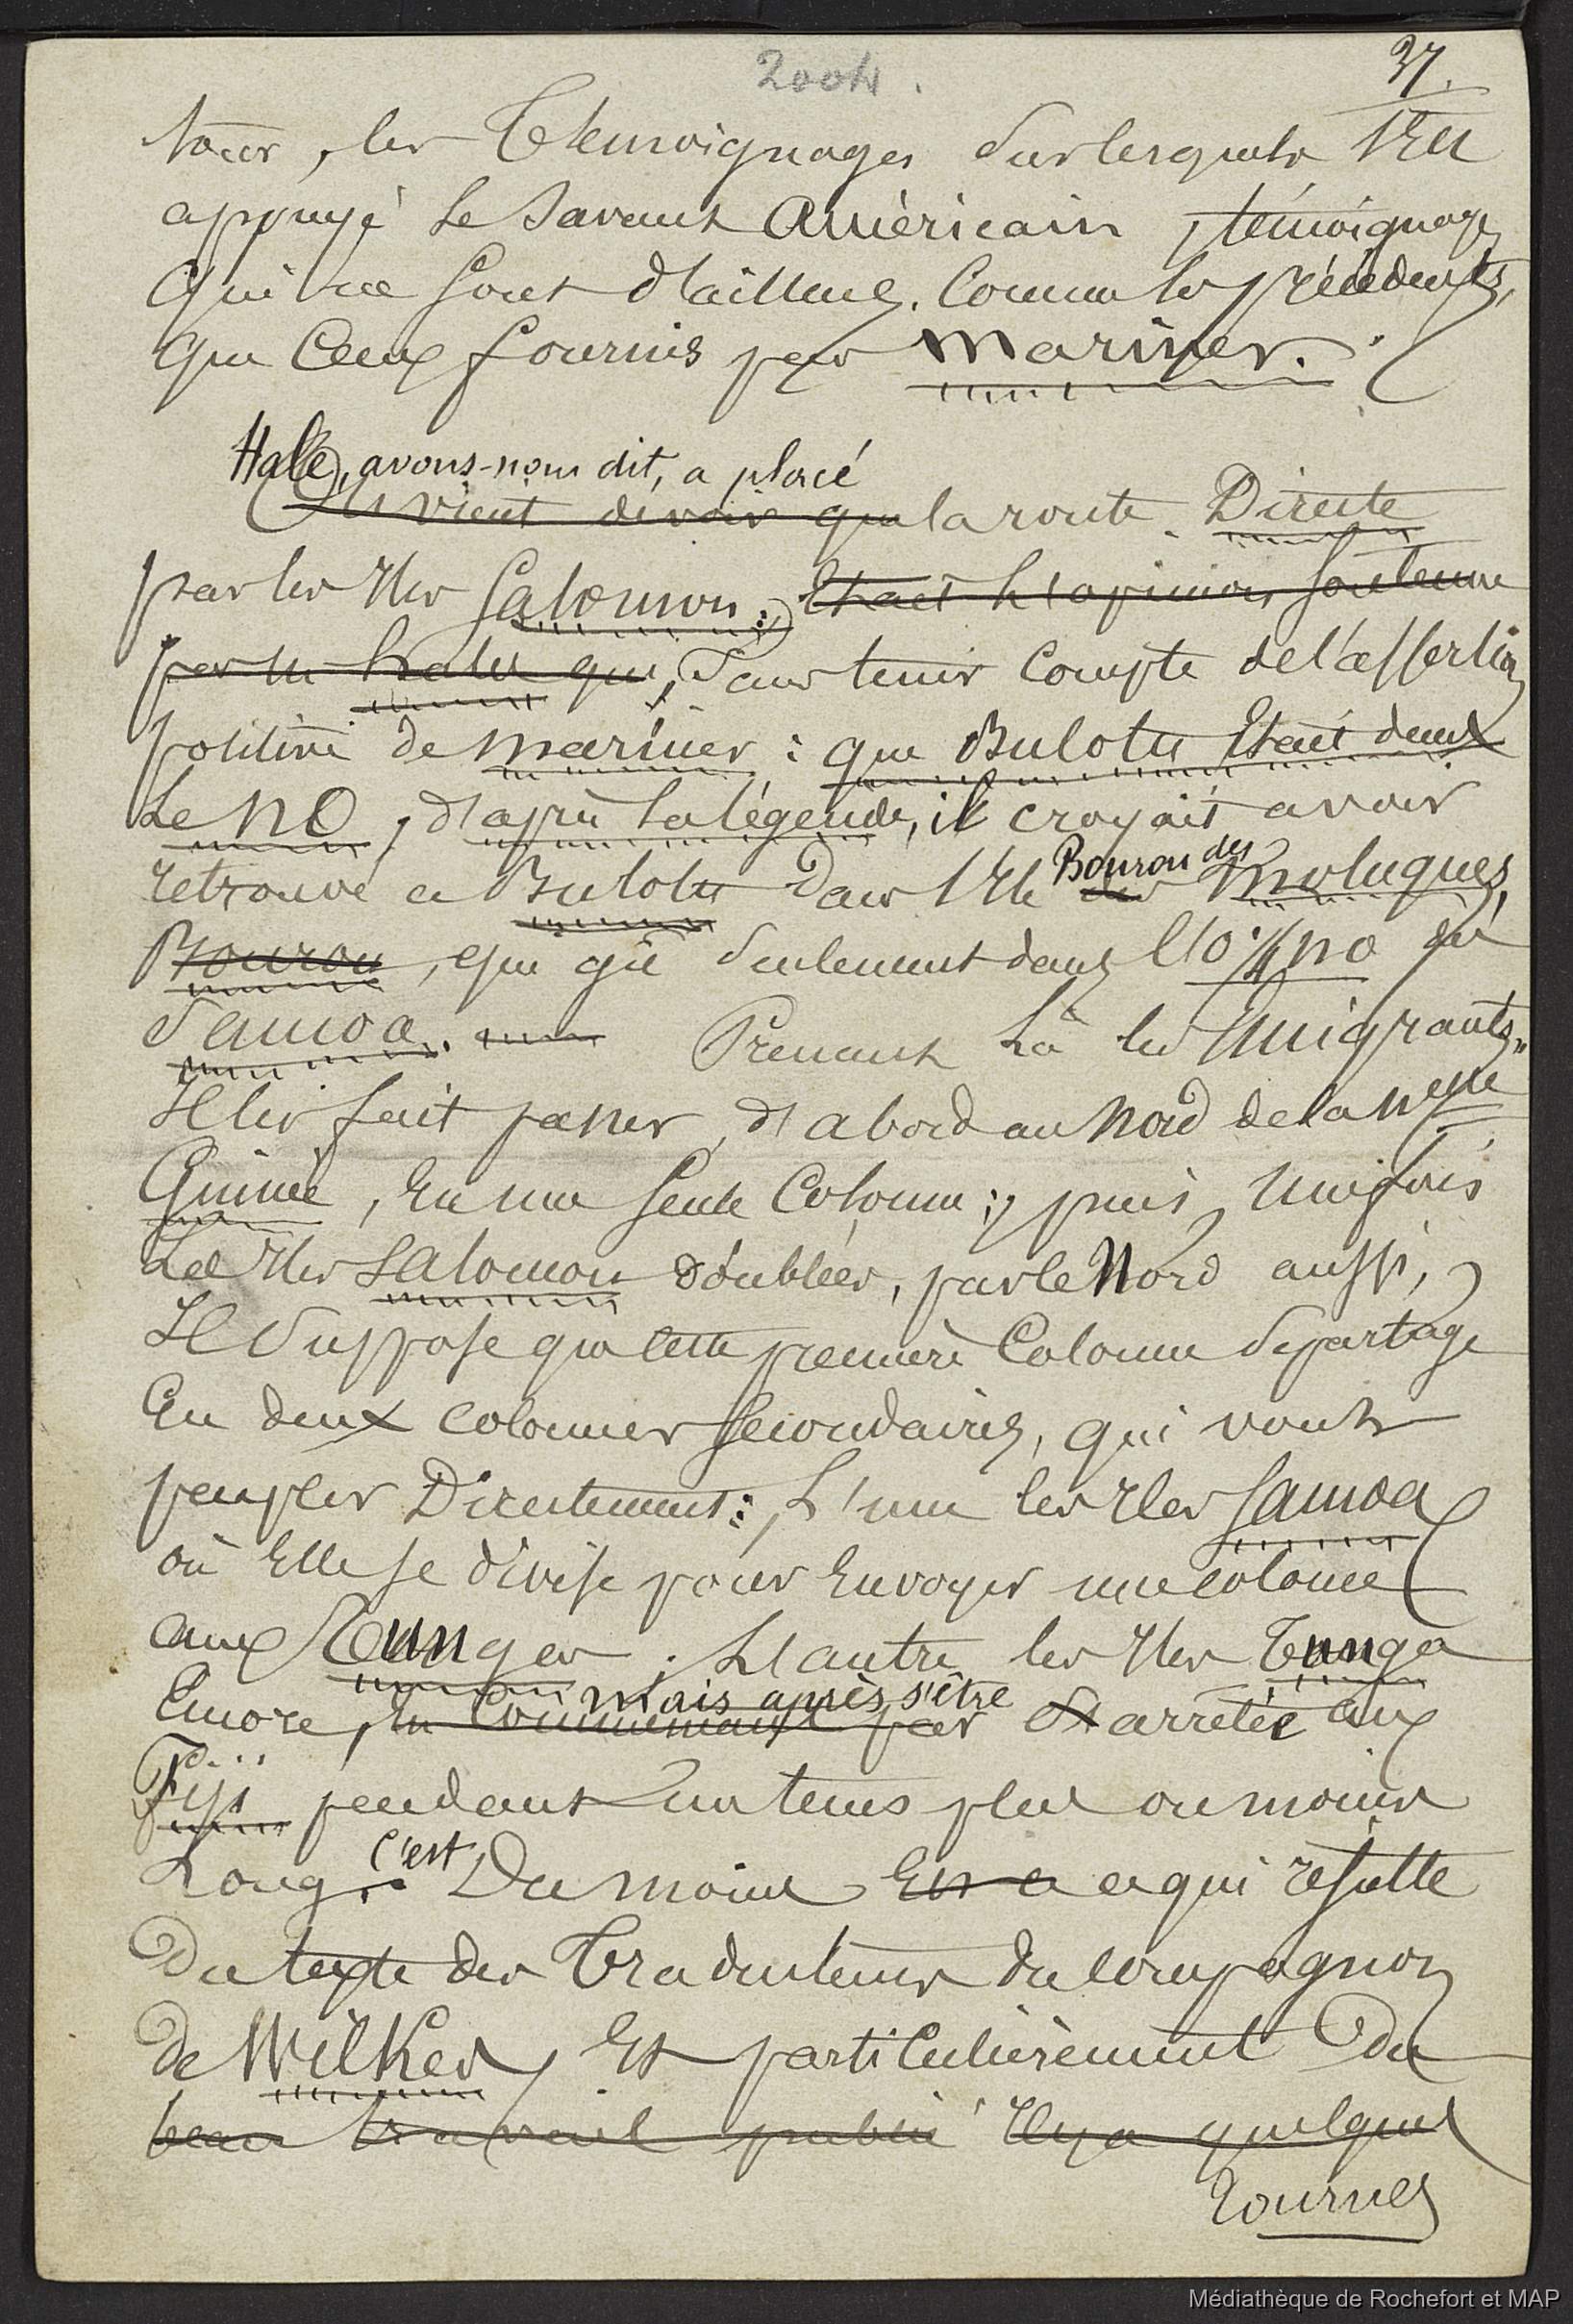 2004.
37.
tous, les Témoignages sur lesquels s'est
appuyé le savant Américain, témoignages
qui ne sont d'ailleurs, comme les précédents,
que ceux fournis par Mariner.
Hale, avons-nous dit, a placé
On vient de voir que la route Directe
par les Iles Salomon; était l'opinion soutenue
par M. Hale qui, sans tenir compte de l'assertion
positive de Mariner : que Bulotu était dans
le NO, d'après la légende, il croyait avoir
Bourou des
retrouvé ce Bulotu dans l'Ile des Moluques,
Bourou, qui git seulement dans l'O ¼ NO de
Samoa. Prenant là les émigrants,
Il les fait passer, d'abord au Nord de la Nelle
Guinée, en une seule Colonne; puis, une fois
les Iles Salomon doublées, par le Nord aussi,
Il suppose que cette première Colonne se partage
En deux colonnes secondaires, qui vont
peupler Directement: L'une les Iles Samoa
où Elle se divise pour Envoyer une colonie
aux Tunga; L'autre les Iles Tunga
mais après s'être
Encore, en commençant par st arrêtée aux
Fiji pendant un tems plus ou moins
Long. c'est Du moins En a ce qui résulte
Du texte des Traducteurs du compagnon
de Wilkes, Et particulièrement du
beau travail publié Il y a quelques
Tournez
Médiathèque de Rochefort et MAP